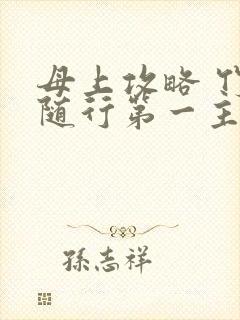 母上攻略
随行第一主
孫志祥